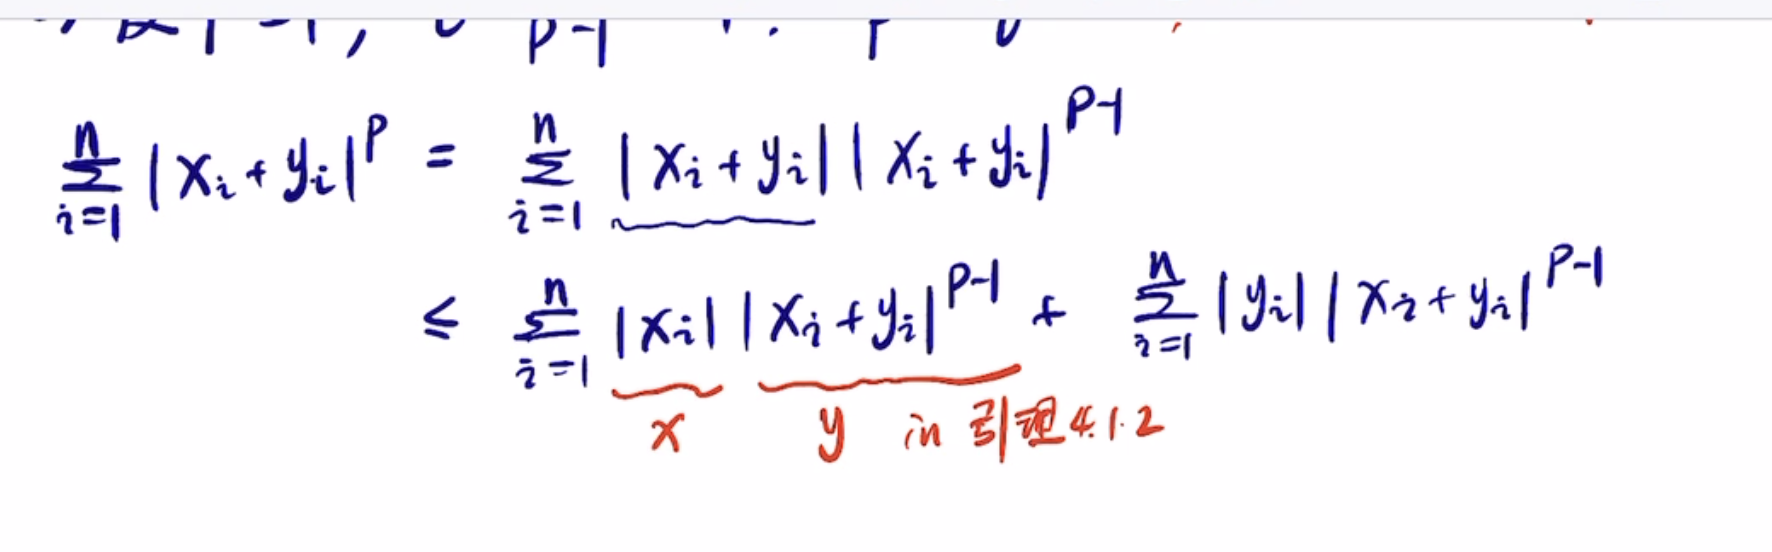 ∑_{i=1}^{n} |x_i + y_i|^p = ∑_{i=1}^{n} |x_i + y_i| |x_i + y_i|^{p-1}
≤ ∑_{i=1}^{n} |x_i| |x_i + y_i|^{p-1} + ∑_{i=1}^{n} |y_i| |x_i + y_i|^{p-1}
x y in 引理4.1.2